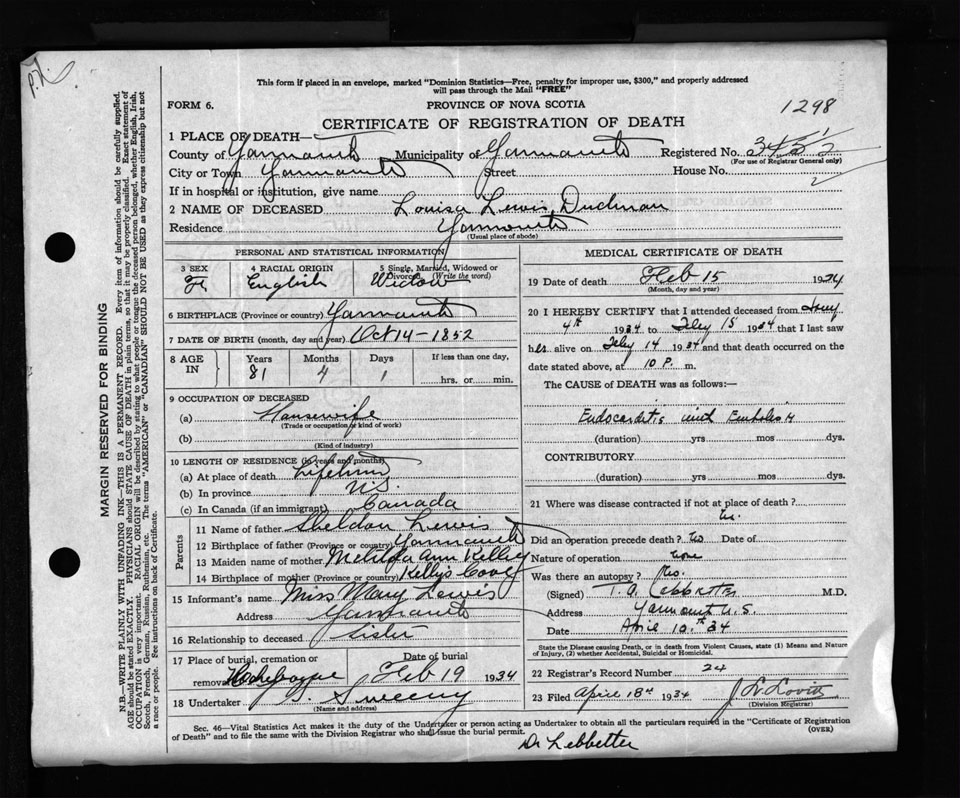 This form if placed in an envelope, marked "Dominion Statistics—Free, penalty for improper use, $300," and properly addressed
will pass through the Mail "FREE"
FORM 6. PROVINCE OF NOVA SCOTIA
1298
CERTIFICATE OF REGISTRATION OF DEATH
1 PLACE OF DEATH—
County of Yarmouth Municipality of Yarmouth Registered No.
(For use of Registrar General only)
City or Town Yarmouth Street House No.
If in hospital or institution, give name
2 NAME OF DECEASED Louisa Lewis Dudman
Residence Yarmouth
(Usual place of abode)
PERSONAL AND STATISTICAL INFORMATION
3 SEX F 4 RACIAL ORIGIN English 5 Single, Married, Widowed or Divorced (Write the word) Widow
6 BIRTHPLACE (Province or country) Yarmouth
7 DATE OF BIRTH (month, day and year) Oct 14-1852
8 AGE IN Years 81 Months 4 Days 1 If less than one day, hrs. or min.
9 OCCUPATION OF DECEASED
(a) Housewife
(Trade or occupation or kind of work)
(b)
(Kind of industry)
10 LENGTH OF RESIDENCE (in years and months)
(a) At place of death Lifetime
(b) In province N.S.
(c) In Canada (if an immigrant) Canada
Parents
11 Name of father Sheldon Lewis
12 Birthplace of father (Province or country) Yarmouth
13 Maiden name of mother Metilda Ann Kelley
14 Birthplace of mother (Province or country) Kellys Cove
15 Informant's name Miss Mary Lewis
Address Yarmouth
16 Relationship to deceased Sister
17 Place of burial, cremation or removal Date of burial Feb 19 1934
18 Undertaker Sweeny
(Name and address)
MEDICAL CERTIFICATE OF DEATH
19 Date of death Feb 15 1934
(Month, day and year)
20 I HEREBY CERTIFY that I attended deceased from
4th 1934 to Feby 15 1934 that I last saw
her alive on Feby 14 1934 and that death occurred on the
date stated above, at 10 P. m.
The CAUSE of DEATH was as follows:—
Endocarditis with Embolism
(duration) yrs mos dys.
CONTRIBUTORY
(duration) yrs mos dys.
21 Where was disease contracted if not at place of death?
Did an operation precede death? No Date of
Nature of operation None
Was there an autopsy?
(Signed) T. A. Lebbetter M.D.
Address Yarmouth N.S.
Date April 10th 34
State the Disease causing Death, or in death from Violent Causes, state (1) Means and Nature
of Injury, (2) whether Accidental, Suicidal or Homicidal.
22 Registrar's Record Number 24
23 Filed April 18th 1934 Lovitt
(Division Registrar)
Sec. 46—Vital Statistics Act makes it the duty of the Undertaker or person acting as Undertaker to obtain all the particulars required in the "Certificate of Registration
of Death" and to file the same with the Division Registrar who shall issue the burial permit. (OVER)
Dr Lebbetter
MARGIN RESERVED FOR BINDING
N.B.—WRITE PLAINLY WITH UNFADING INK—THIS IS A PERMANENT RECORD. Every item of information should be carefully supplied.
AGE should be stated EXACTLY. PHYSICIANS should STATE CAUSE OF DEATH in plain terms, so that it may be properly classified. Exact statement of
OCCUPATION is very important. RACIAL ORIGIN will be described by stating to what people or tongue the deceased person belonged, whether English, Irish,
Scotch, French, German, Russian, Ruthenian, etc. The terms "AMERICAN" or "CANADIAN" SHOULD NOT BE USED as they express citizenship but not
a race or people. See instructions on back of Certificate.